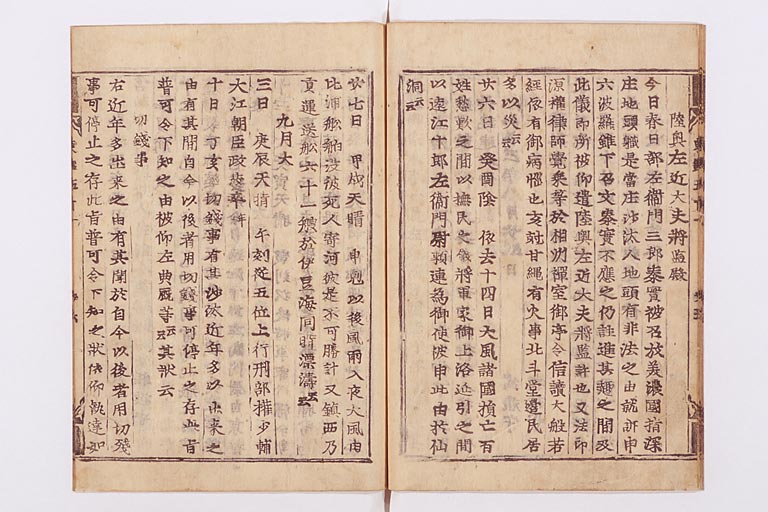 陸奥左近大夫将監殿
今日春日部左衛門三郎泰實被召放美濃國指深
庄地頭職是當庄沙汰人地頭有非法之由就訴申
六波羅雖下召文泰實不應之仍註進其趣之間及
此儀即所被仰遣陸奥左近大夫将監許也又法印
律師審乗等於相州禅室御亭令信讀大般若
経依有御病悩也亥尅甘縄有火事北斗堂邊民居
多以災云云
廿六日 癸酉陰 依去十四日大風諸國損亡百
姓愁歎之間以撫民之儀将軍家御上洛延引之間
以遠江十郎左衛門尉頼連為御使被申此由於仙
洞云云
廿七日 甲戌天晴 申尅以後風雨入夜大風由
比浦舩舶沒破死人寄河彼是不可勝計又鎮西乃
貢運送舩六十一艘於伊豆海同時漂濤云云
九月大
三日 庚辰天晴 午刻從五位上行刑部權少輔
大江朝臣政茂卒年
十日 丁亥 切錢事有其沙汰近年多以出来之
由有其聞自今以後者用切錢事可停止之存此旨
普可令下知之由被仰左典厩等云云其状云
切錢事
右近年多出来之由有其聞於自今以後者用切殘
事可停止之存此旨普可令下知之状依仰執達如